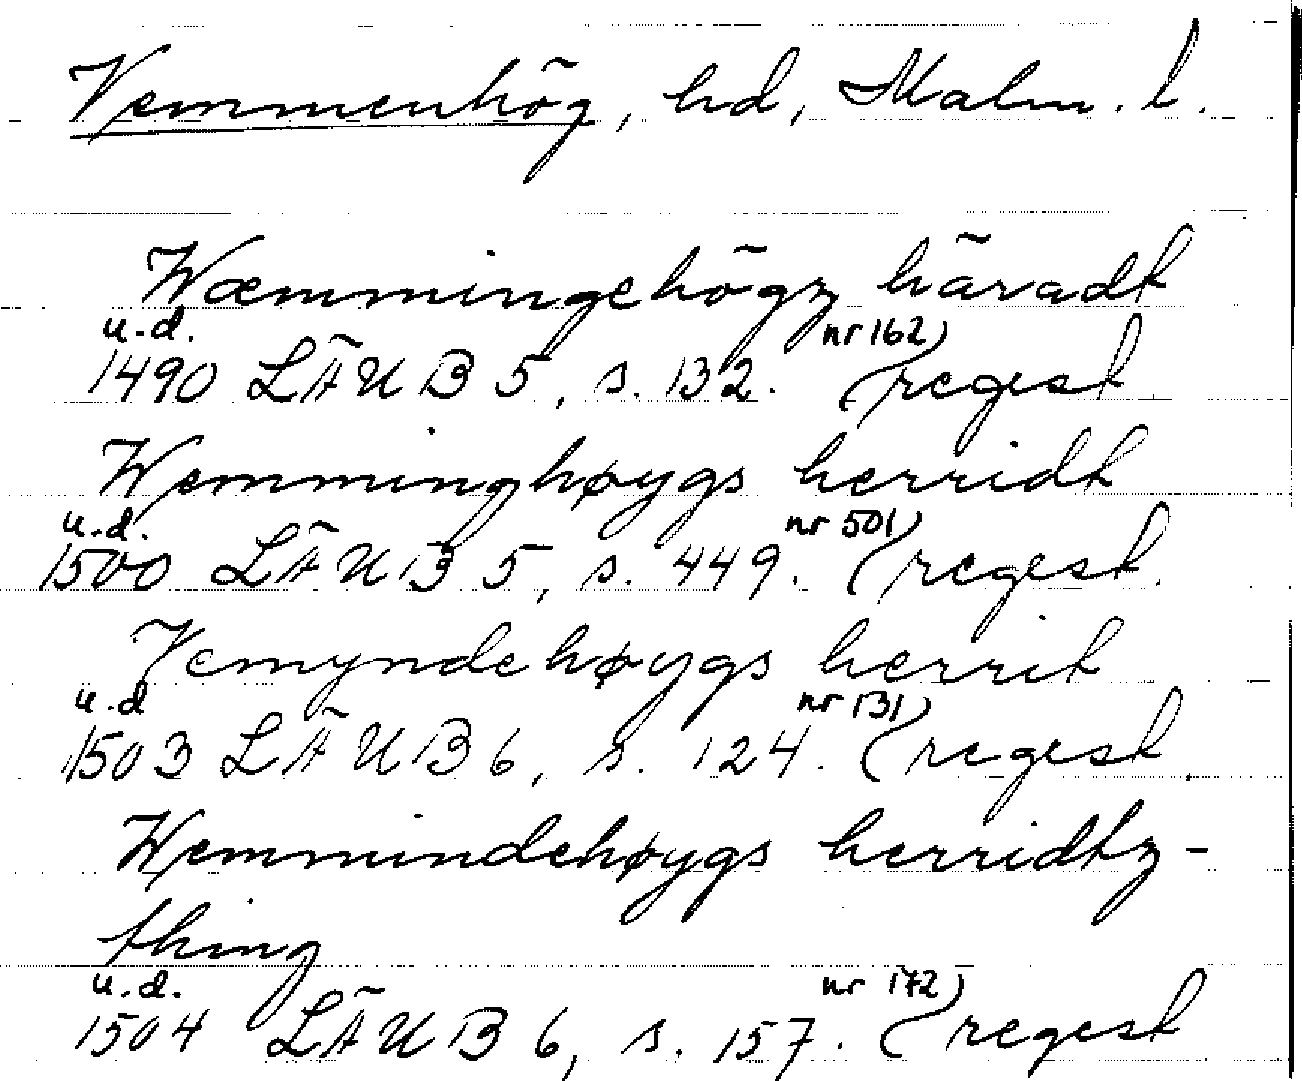 Vemmenhög, hd, Malm. l.
Wæmmingehögz häradt
u.d.
1490 LÄUB 5, s. 132. (regest nr 162)
Wemminghøygs herridt
u.d.
1500 LÄUB 5, s. 449. (regest. nr 501)
Vemyndehøygs herrit
u.d
1503 LÄUB 6, s. 124. (regest. nr 131)
Wemmindehøygs herridtz-
thing
u.d.
1504 LÄUB 6, s. 157. (regest nr 172)